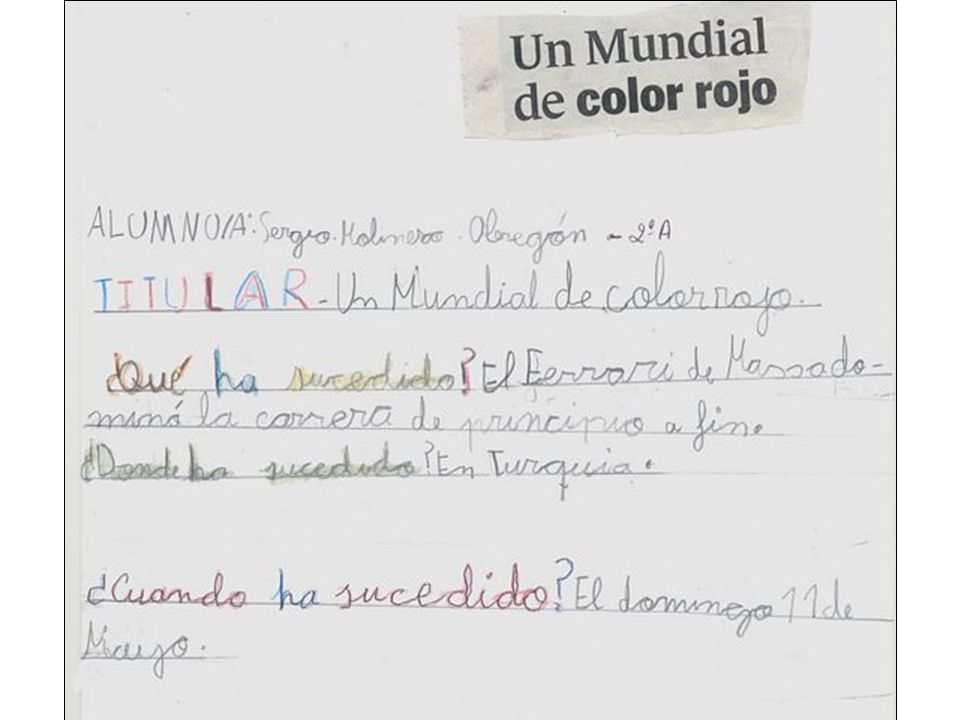 Un Mundial
de color rojo
ALUMNO/A: Sergio Molinero Obregón - 2º A
TITULAR - Un Mundial de color rojo.
¿Qué ha sucedido? El Ferrari de Massa do-
minó la carrera de principio a fin.
¿Donde ha sucedido? En Turquia.
¿Cuando ha sucedido? El domingo 11 de
Mayo.